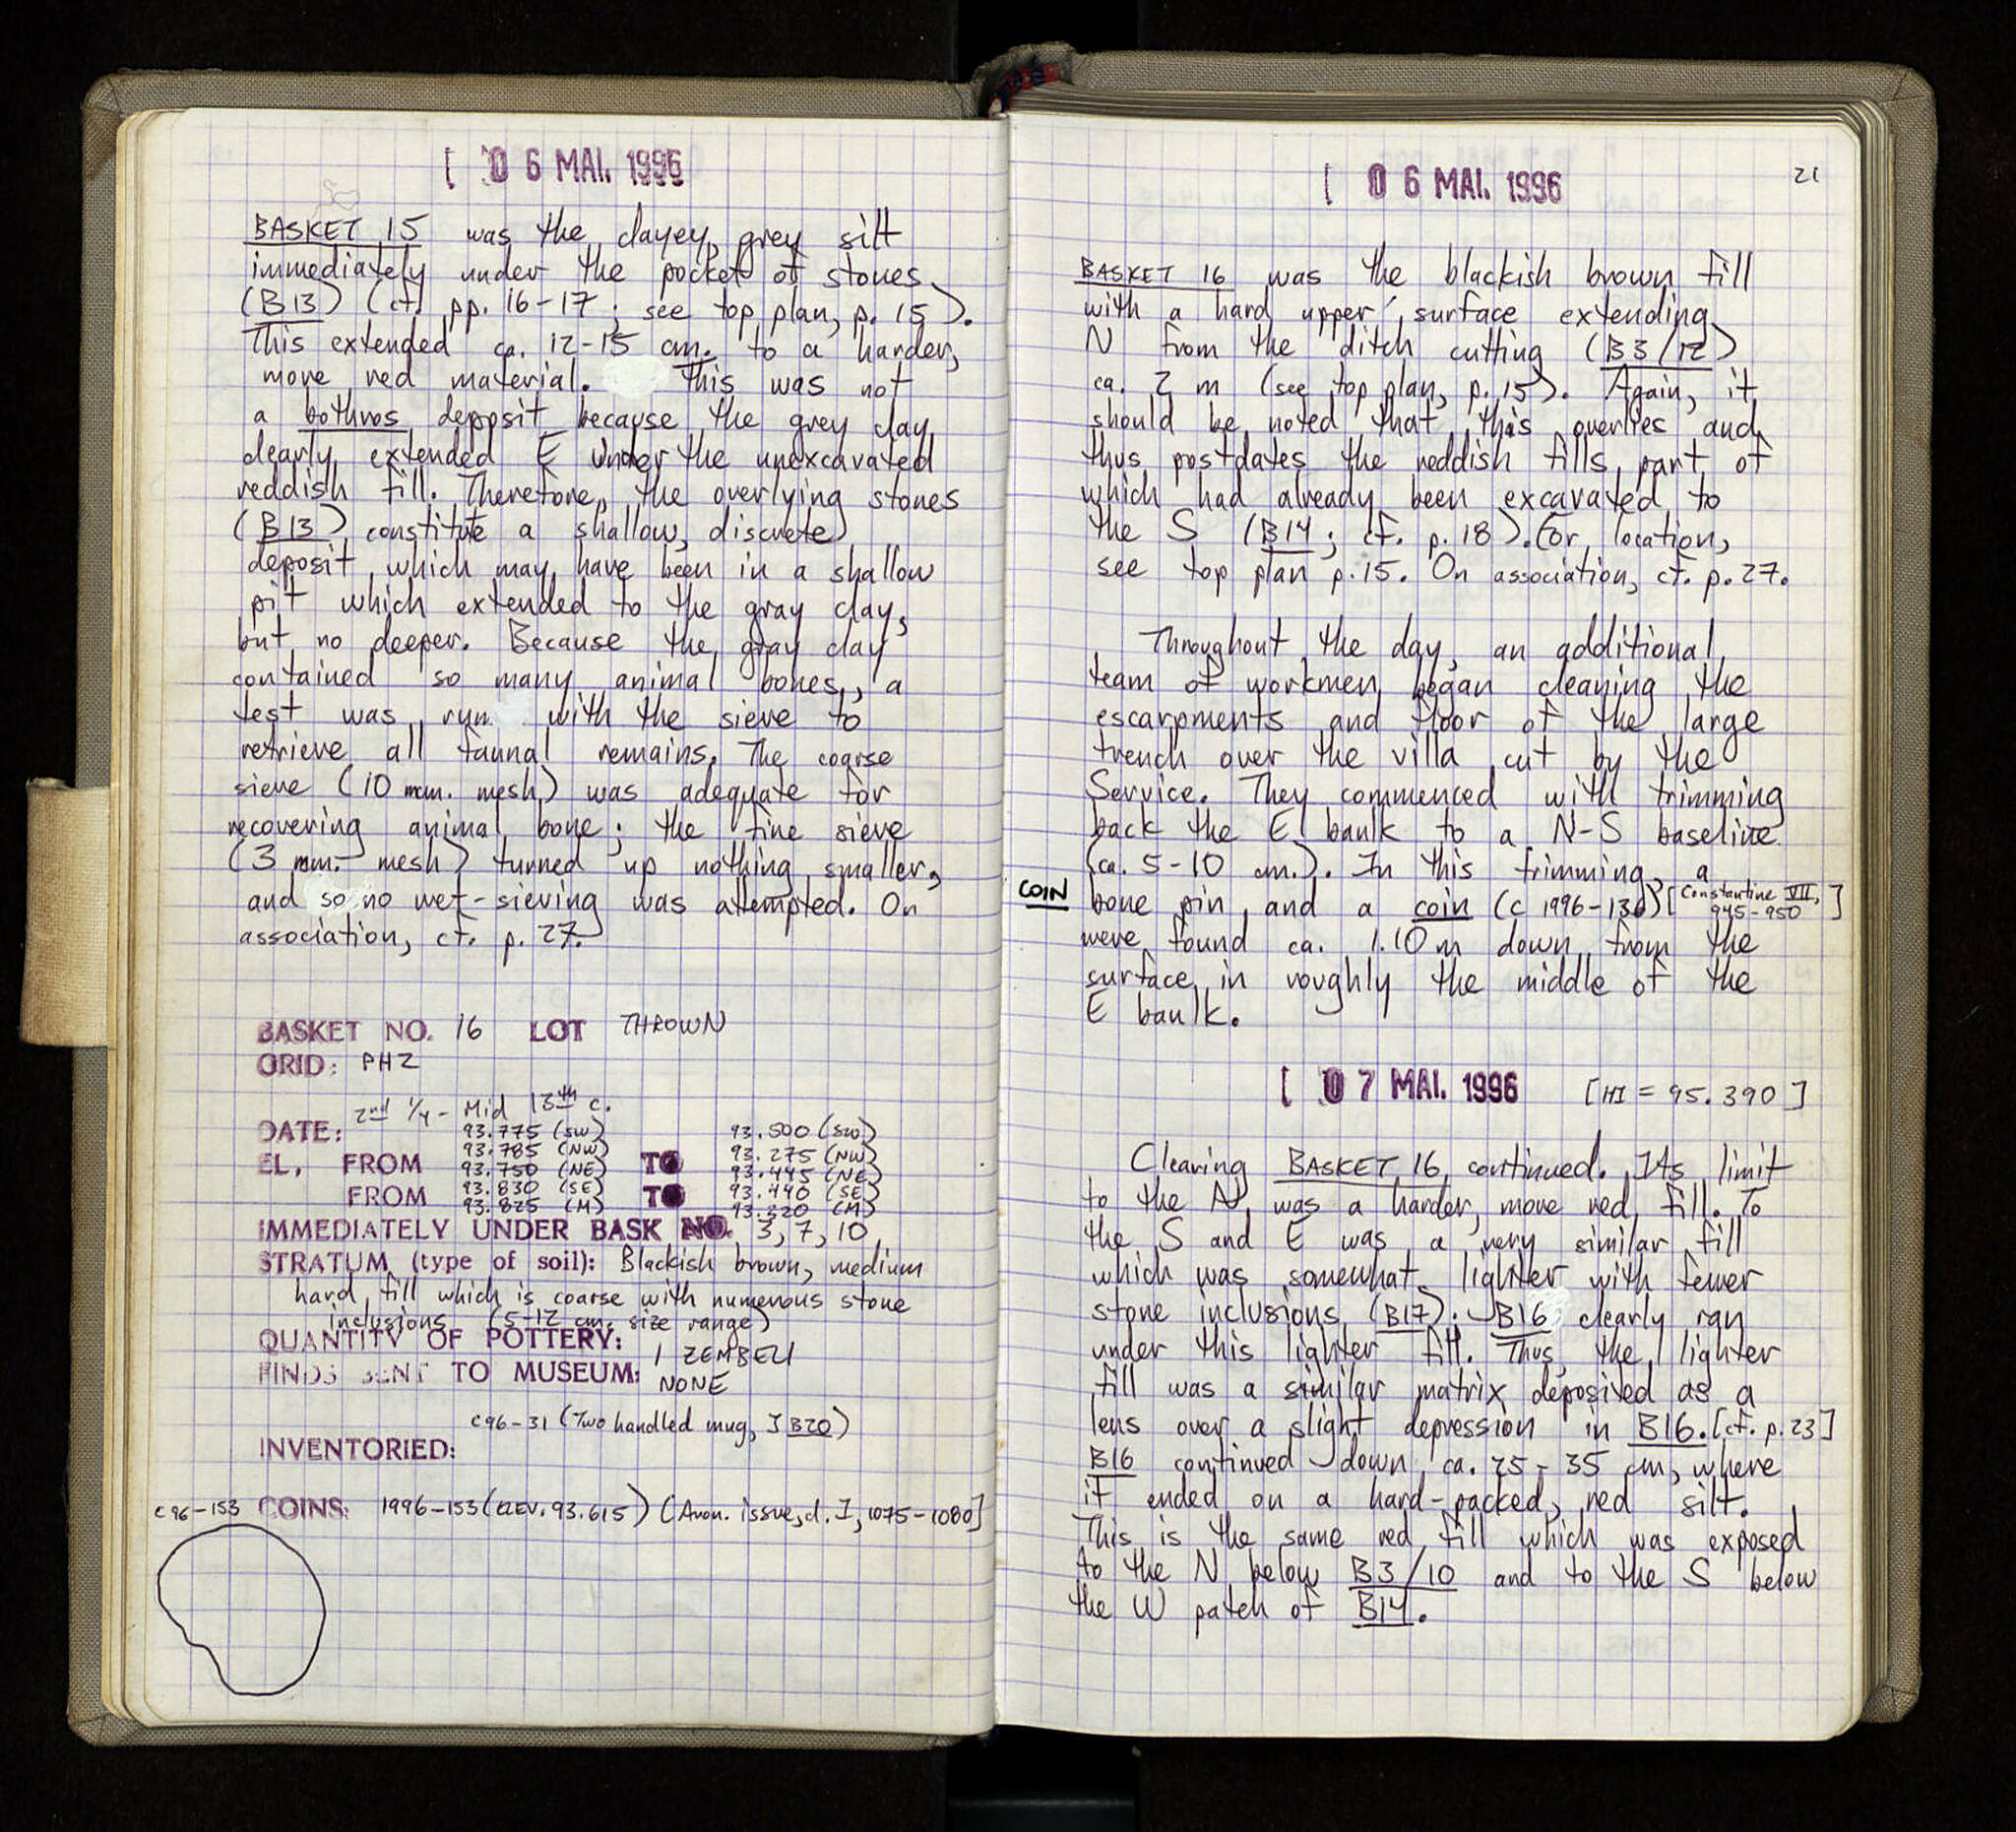 [ 0 6 MAI. 1996
BASKET 15 was the clayey, grey silt
immediately under the pocket of stones
(B13) (cf. pp. 16-17; see top plan, p. 15).
This extended ca. 12-15 cm. to a harder,
more red material. This was not
a bothros deposit because the grey clay
clearly extended E under the unexcavated
reddish fill. Therefore, the overlying stones
(B13) constitute a shallow, discrete
deposit which may have been in a shallow
pit which extended to the gray clay,
but no deeper. Because the gray clay
contained so many animal bones, a
test was run with the sieve to
retrieve all faunal remains. The coarse
sieve (10 mm. mesh) was adequate for
recovering animal bone; the fine sieve
(3 mm. mesh) turned up nothing smaller,
and so no wet-sieving was attempted. On
association, cf. p. 27.
BASKET NO. 16 LOT THROWN
GRID: PHZ
2nd 1/4 - Mid 13th c.
DATE:
93.775 (SW) 93.500 (SW)
93.785 (NW) 93.275 (NW)
EL, FROM 93.750 (NE) TO 93.445 (NE)
FROM 93.830 (SE) TO 93.440 (SE)
93.825 (M) 93.320 (M)
IMMEDIATELY UNDER BASK NO. 3, 7, 10
STRATUM (type of soil): Blackish brown, medium
hard fill which is coarse with numerous stone
inclusions (5-12 cm. size range)
QUANTITY OF POTTERY: 1 ZEMBELI
FINDS SENT TO MUSEUM: NONE
c96-31 (Two handled mug, J B20)
INVENTORIED:
c96-153 COINS: 1996-153 (ELEV. 93.615) (Anon. issue, cl. I, 1075-1080]
[ 0 6 MAI. 1996
21
BASKET 16 was the blackish brown fill
with a hard upper surface extending
N from the ditch cutting (B3/12)
ca. 2 m (see top plan, p. 15). Again, it
should be noted that this overlies and
thus postdates the reddish fills, part of
which had already been excavated to
the S (B14; cf. p. 18). For location,
see top plan p. 15. On association, cf. p. 27.
Throughout the day, an additional
team of workmen began cleaning the
escarpments and floor of the large
trench over the villa cut by the
Service. They commenced with trimming
back the E baulk to a N-S baseline
(ca. 5-10 cm.). In this trimming, a
COIN bone pin and a coin (c 1996-136) [Constantine VII, 945-950]
were found ca. 1.10 m down from the
surface in roughly the middle of the
E baulk.
[ 0 7 MAI. 1996 [HI = 95.390]
Clearing BASKET 16 continued. Its limit
to the N was a harder, more red fill. To
the S and E was a very similar fill
which was somewhat lighter with fewer
stone inclusions (B17). B16 clearly ran
under this lighter fill. Thus, the lighter
fill was a similar matrix deposited as a
lens over a slight depression in B16. [cf. p. 23]
B16 continued down ca. 25-35 cm, where
it ended on a hard-packed, red silt.
This is the same red fill which was exposed
to the N below B3/10 and to the S below
the W patch of B14.